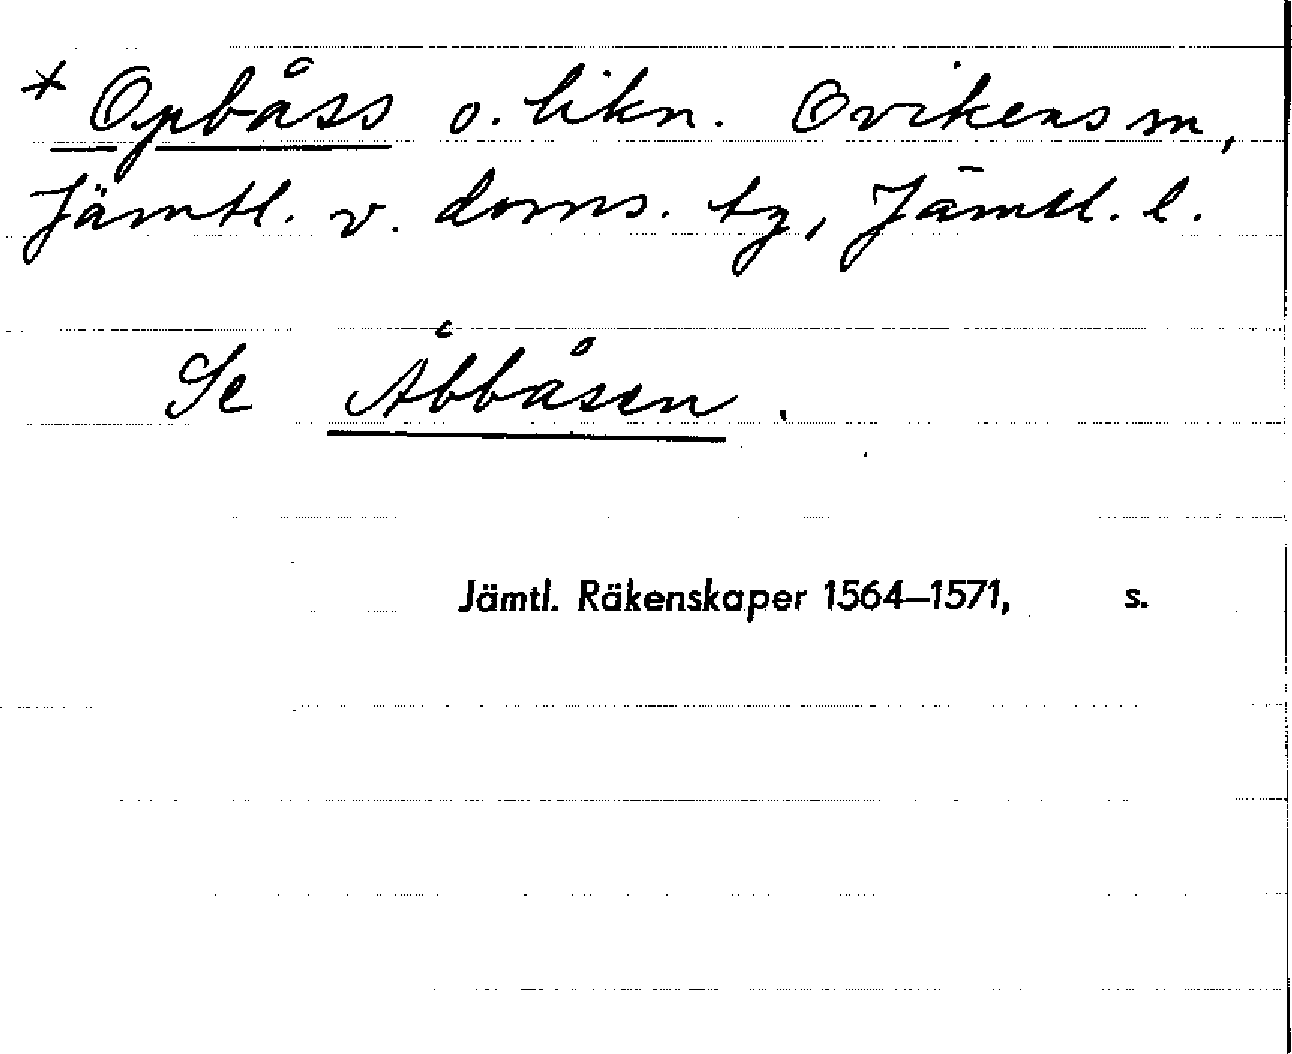 * Opbåss o. likn. Ovikens sn,
Jämtl. v. doms. tg, Jämtl. l.
Se Åbbåsen.
Jämtl. Räkenskaper 1564–1571, s.